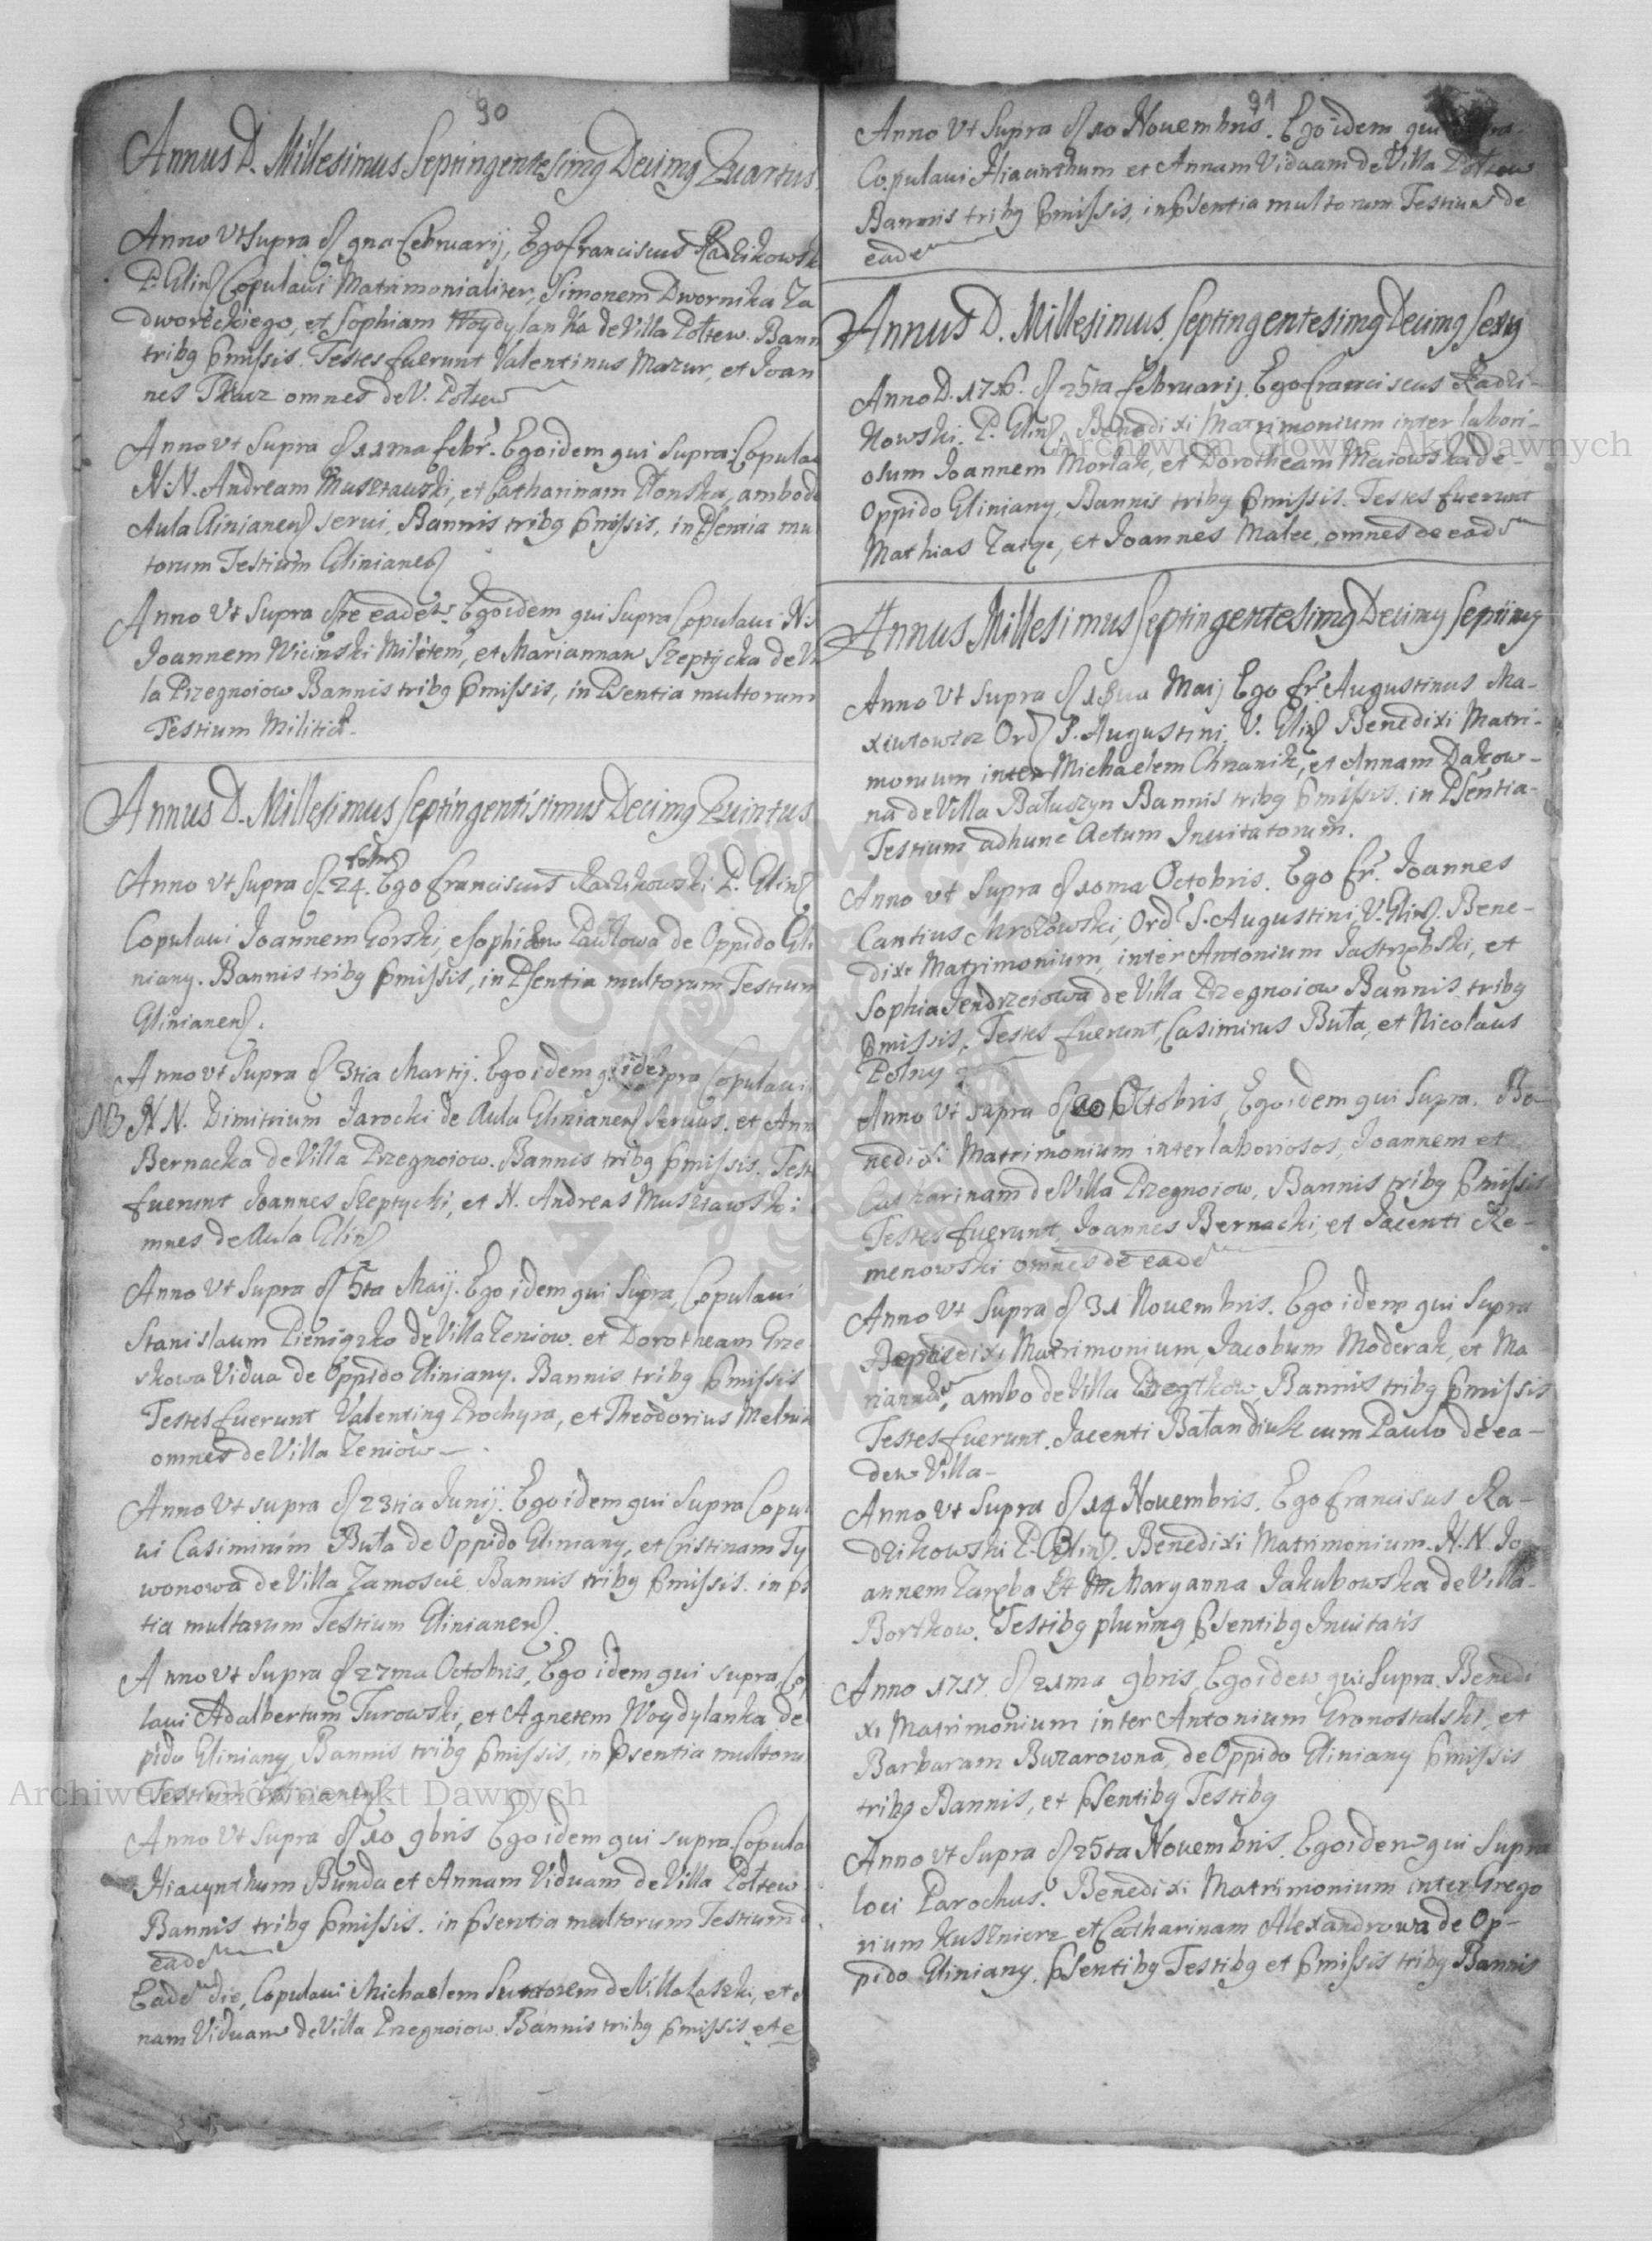 90
Annus D. Millesimus Septingentesimg Decimg Quartus
Anno Vt Supra d gna Februarij, Ego Franciscus Radzikowsk
P. Glin Copulaui Matrimonialiter, Simonem Dwornika Za
dworeckiego, et Sophiam Woydylanka de Villa Połtew. Bann
tribg pmissis. Testes fuerunt Valentinus Mazur, et Joan
nes Tkacz omnes de V. Połtew
Anno vt Supra d 11ma Febr. Ego idem qui supra Copulau
N.N. Andream Musztawski, et Catharinam Płonska, ambo de
Aula Glinianen serui, Bannis tribg pmissis, in Psentia mu
torum Testium Glinianen
Anno Vt Supra die eadem. Ego idem qui Supra Copulaui N.
Joannem Wicinski Militem, et Mariannam Szeptycka de Vi
la Przegnoiow Bannis tribg pmissis, in Psentia multorum
Testium Militia.
Annus D. Millesimus Septingentisimus Decimg Quintus
Anno vt supra d. 24. Febr Ego Franciscus Radzikowski P. Glin
Copulaui Joannem Gorski, e Sophiam Pawłowa de Oppido Gli
niany. Bannis tribg pmissis, in Psentia multorum Testium
Glinianen.
Anno vt Supra d 3tia Martij. Ego idem q. idem pra Copulaui
NB N.N. Dimitrium Jarocki de Aula Glinianen seruus, et Ann
Bernacka de Villa Przegnoiow. Bannis tribg pmissis. Test
fuerunt Joannes Szeptycki, et N. Andreas Musztawski
mnes de Aula Glin
Anno Vt Supra d 5ta Maij. Ego idem qui Supra, Copulaui
Stanislaum Pieniązko de Villa Zeniow. et Dorotheam Grze
skowa Vidua de Oppido Gliniany. Bannis tribg pmissis
Testes fuerunt Valenting Prochyra, et Theodorius Melnik
omnes de Villa Zeniow
Anno Vt supra d 23tia Junij. Ego idem qui Supra Copul
ui Casimirum Buta de Oppido Gliniany, et Cristinam Ty
wonowa de Villa Zamoscie Bannis tribg pmissis. in ps
tia multarum Testium Glinianen.
Anno Vt Supra d 27ma Octobris, Ego idem qui supra, Co
laui Adalbertum Turowski, et Agnetem Woydylanka de
pido Gliniany Bannis tribg pmissis, in Psentia multoru
Testium Glinianen
Anno Vt Supra d 10 9bris Ego idem qui supra Copula
Hiacynthum Bunda et Annam Viduam de Villa Połtew
Bannis tribg pmissis. in psentia multorum Testium d
eade
Eade die, Copulaui Michaelem Sutorem de Villa Laszki, et
nam Viduam de Villa Przegnoiow. Bannis tribg pmissis et e
91
Anno Vt Supra d 10 Nouembris. Ego idem qui
Copulaui Hiacinthum et Annam Viduam de Villa Połtew
Bannis tribg pmissis, in psentia multorum Testium de
eade
Annus D. Millesimus Septingentesimg Decimg Sextg
Anno D. 1716. d 25ta Februarij. Ego Franciscus Radzi-
kowski. P. Glin Benedixi Matrimonium inter labori-
osum Joannem Morlak, et Dorotheam Maiowska de
Oppido Gliniany, Bannis tribg pmissis. Testes fuerunt
Mathias Zaige, et Joannes Malec, omnes de ead
Annus Millesimus Septingentesimg Decimg Septimg
Anno Vt Supra d 18ua Maij Ego Fr. Augustinus Ma-
xiutowicz Ord S. Augustini, V. Glin Benedixi Matri-
monium inter Michaelem Chnanik, et Annam Dakow-
na de Villa Bałuczyn Bannis tribg pmissis. in Psentia
Testium ad hunc Actum Inuitatorum.
Anno vt Supra d 10ma Octobris. Ego Fr. Joannes
Cantius Mrozowski, Ord S. Augustini, V. Glin. Bene-
dixi Matrimonium, inter Antonium Jastrzębski, et
Sophia Jendrzeiowa de Villa Przegnoiow Bannis tribg
pmissis, Testes fuerunt, Casimirus Buta, et Nicolaus
Polny
Anno Vt supra d 20 Octobris, Ego idem qui Supra. Be-
nedixi Matrimonium inter laboriosos, Joannem et
Catharinam de Villa Przegnoiow, Bannis tribg pmissis
Testes fuerunt, Joannes Bernacki, et Jacenti Re-
menowski omnes de eade
Anno Vt Supra d 31 Nouembris. Ego idem qui Supra
Benedixi Matrimonium, Jacobum Moderak, et Ma
rianna, ambo de Villa Bannis tribg pmissis
Testes fuerunt. Jacenti Bałandiuk cum Paulo de ea-
dem Villa-
Anno Vt Supra d 14 Nouembris. Ego Francisus Ra-
dzikowski P. Glin. Benedixi Matrimonium. N.N. Jo
annem Zaręba Et Maryanna Jakubowska de Villa
Bortkow. Testibg plurimg psentibg Inuitatis
Anno 1717. d 21ma 9bris, Ego idem qui Supra. Benedi
xi Matrimonium inter Antonium Gronostalski, et
Barbaram Buzarowna, de Oppido Gliniany pmissis
tribg Bannis, et psentibg Testibg
Anno vt Supra d 25ta Nouembris. Ego idem qui Supra
loci Parochus. Benedixi Matrimonium inter Grego
rium Kusznierz et Catharinam Alexandrowa de Op-
pido Gliniany. psentibg Testibg et pmissis tribg Bannis
Archiwum Główne Akt Dawnych
Archiwum Główne Akt Dawnych